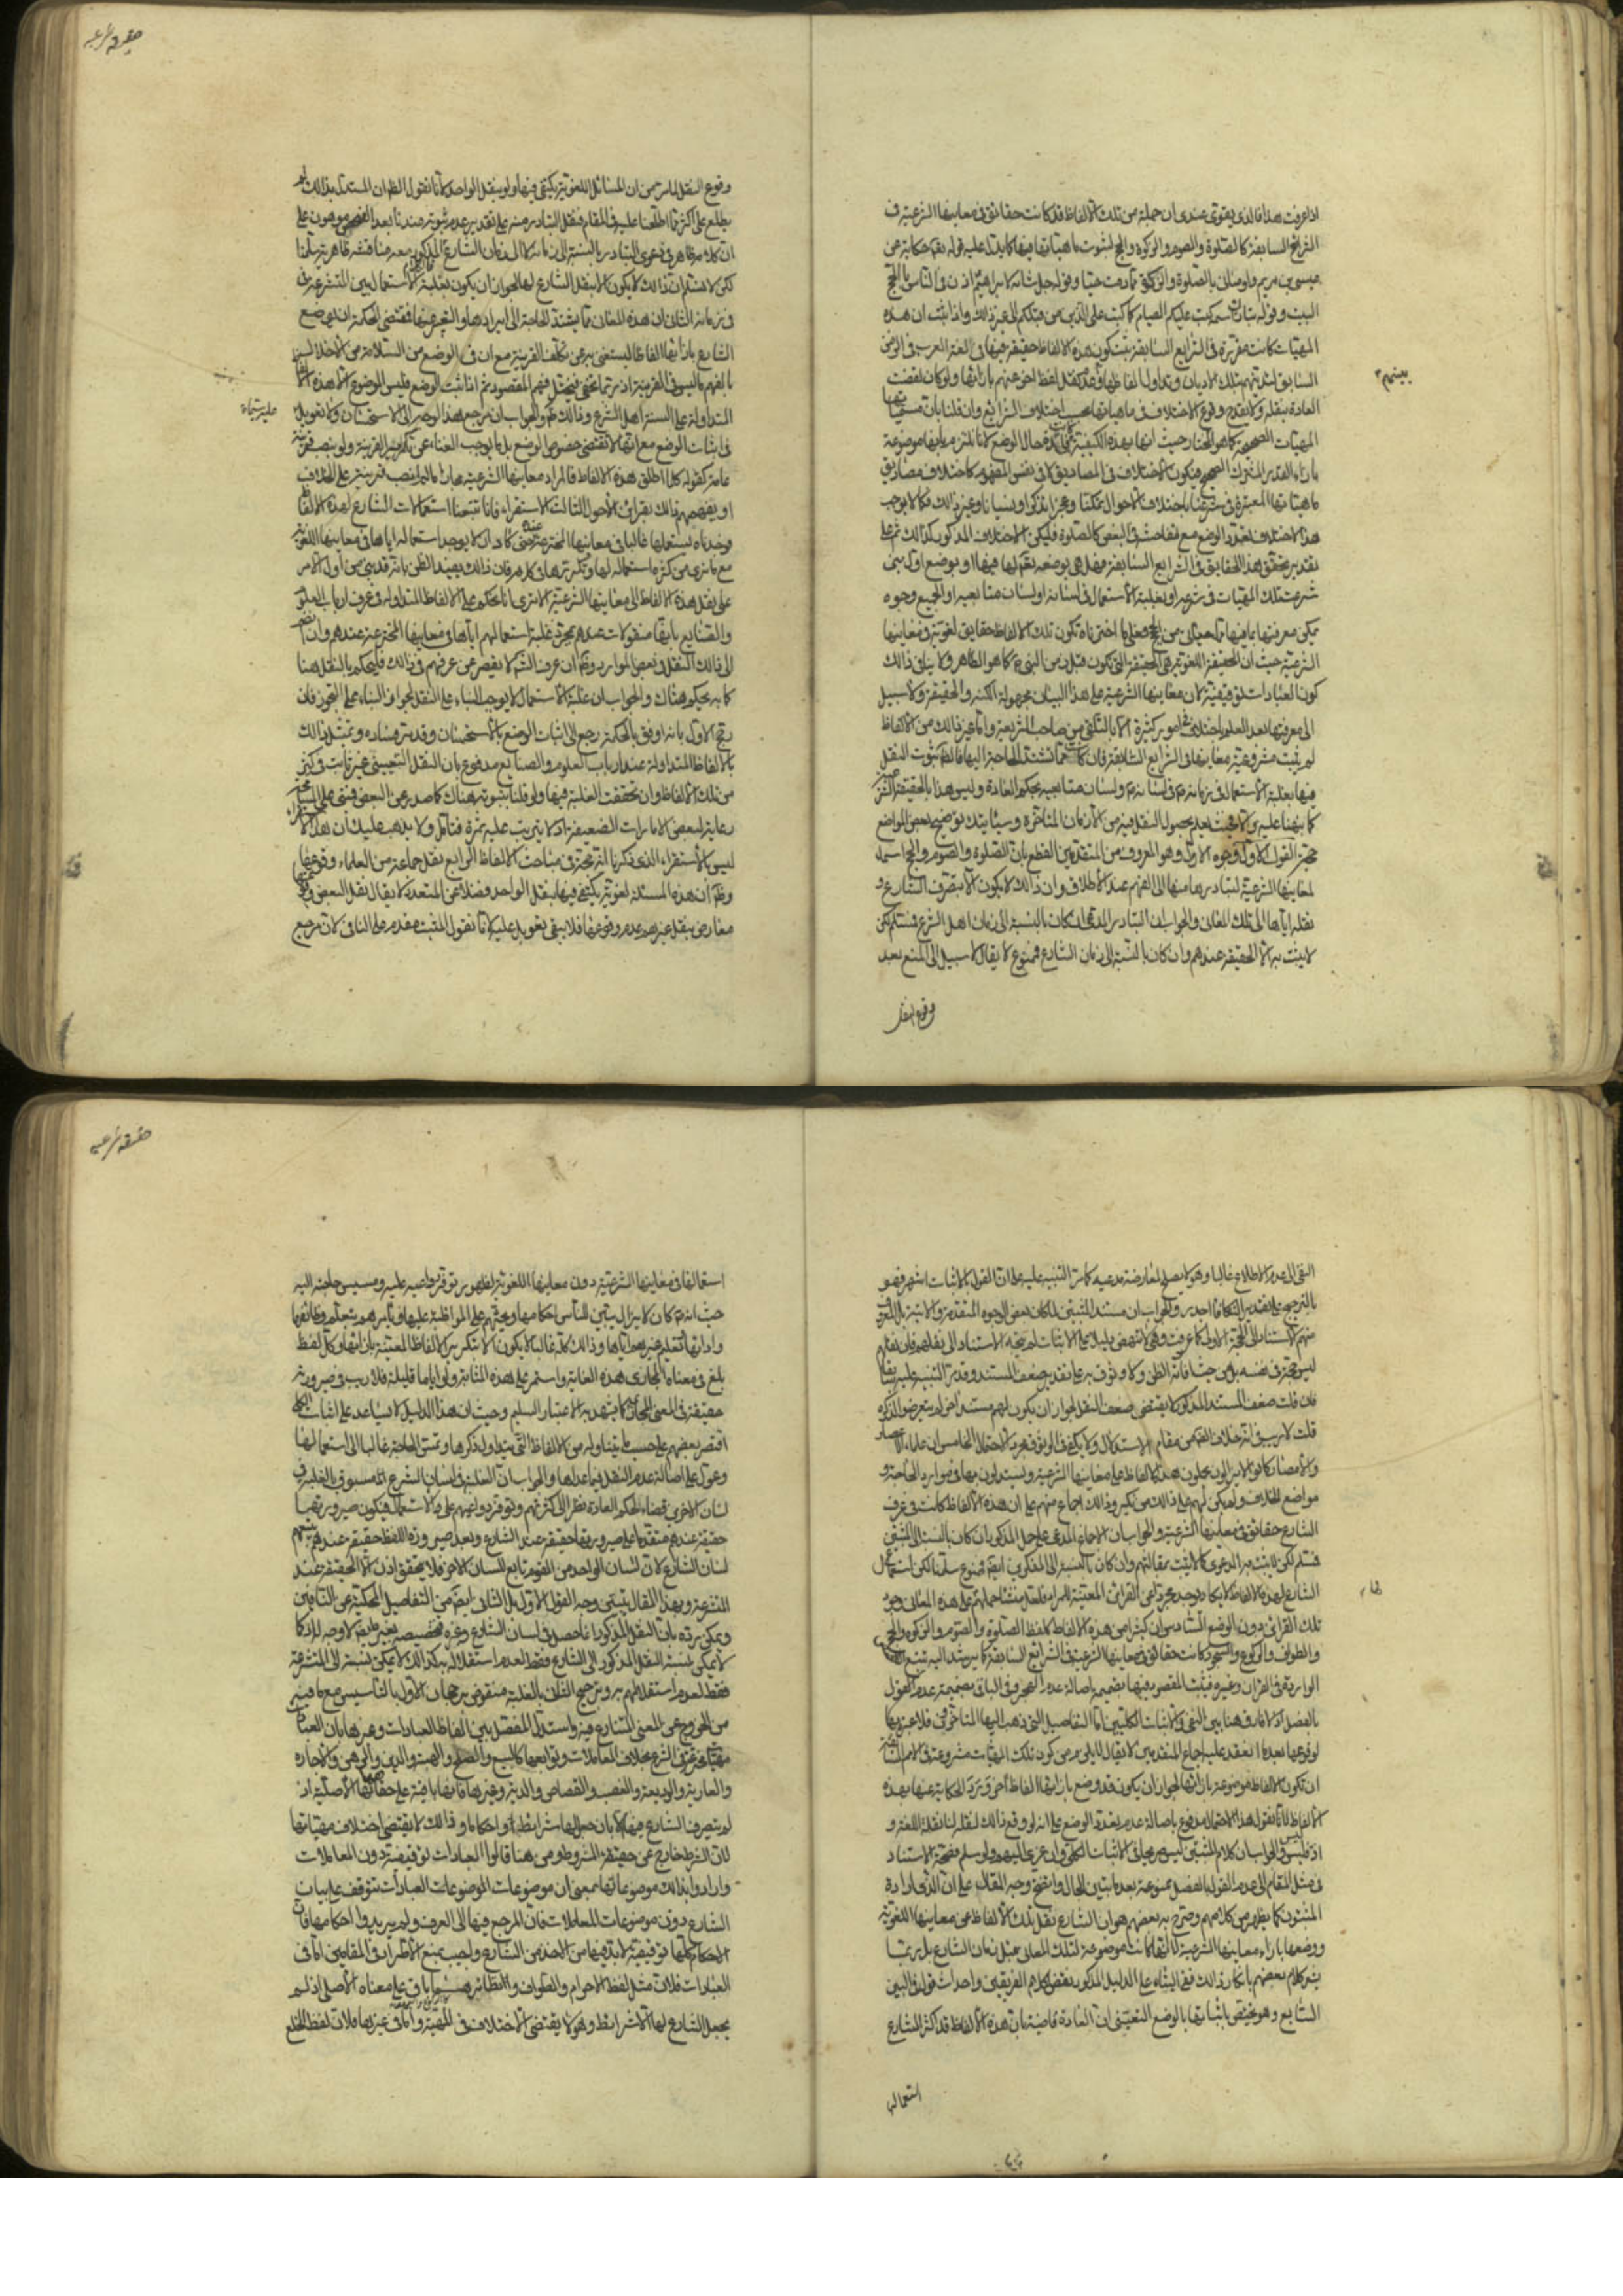 حقيقة شرعية
اذا عرفت هذا فالذي يقوى عندي ان جملة من تلك الالفاظ قد كانت حقائق في معانيها الشرعية في
الشرائع السابقة كالصلوة والصوم والزكوة والحج لثبوت ماهياتها فيها كما يدل عليه قوله تعالى حكاية عن
عيسى بن مريم واوصاني بالصلوة والزكوة ما دمت حيا وقوله جل شانه لابراهيم اذن في الناس بالحج
وقوله كتب عليكم الصيام كما كتب على الذين من قبلكم الى غير ذلك واذا ثبت ان هذه
المهيات كانت مقررة في الشرايع السابقة ثبت كون هذه الالفاظ حقيقة فيها في لغة العرب في الزمن
السابق لتدينهم بتلك الاديان وتداول الفاظها وعدم نقل لفظ اخر عنهم بازائها ولو كان لقضت
بينهم
العادة بنقله ولا يقدح وقوع الاختلاف في ماهياتها بحسب اختلاف الشرائع
المهيات الصحيحة كما هو المختار حيث انها بهذه الكيفية
بازاء القدر المشترك الصحيح فيكون الاختلاف في المصاديق لا في نفس المفهوم كاختلاف مصاديق
ماهياتها المعتبرة في شرعنا باختلاف الاحوال تمكنا وعجزا تذكرا ونسيانا وغير ذلك فكما لا يوجب
هذا الاختلاف تعدد الوضع مع تفاحشه في البعض كالصلوة فليكن الاختلاف المذكور كذلك ثم على
تقدير تحقق هذه الحقايق في الشرايع السابقة فهل هي بوضعه تعالى لها فيها او بوضع اول نبي
شرعت تلك المهيات في شرعه او بغلبة الاستعمال في لسانه او لسان متابعيه او الجميع وجوه
يمكن معرفتها
الشرعية حيث ان الحقيقة اللغوية هي الحقيقة التي تكون قبل زمن النبي كما هو الظاهر ولا ينافي ذلك
كون العبادات توقيفية لان معانيها الشرعية على هذا البيان مجهولة الكنه والحقيقة ولا سبيل
الى معرفتها بعد العلم باختلافها في امور كثيرة الا بالتلقي من صاحب الشريعة واما غير ذلك من الالفاظ
لم يثبت مشروعية معانيها في الشرايع السالفة فان كانت مما تشتد الحاجة اليها فالظاهر ثبوت النقل
فيها بغلبة الاستعمال في زمانه في لسانه ولسان متابعيه بحكم العادة وليس هذا بالحقيقة
كما نبهنا عليه والا فحيث يعلم بحصول النقل فيه من الازمان المتاخرة وسياتيك توضيح بعض المواضع
حجة القول الاول وجوه الاول وهو المعروف من المتقدمين القطع بان الصلوة والصوم والحج اسماء
لمعانيها الشرعية لتبادرها منها الى الفهم عند الاطلاق وان ذلك لا يكون الا بتصرف الشارع و
نقله اياها الى تلك المعاني والجواب ان التبادر المدعى ان كان بالنسبة الى زمان اهل الشرع فمسلم لكن
لا يثبت به الا الحقيقة عندهم وان كان بالنسبة الى زمان الشارع فممنوع لا يقال لا سبيل الى المنع بعد
وقوع النقل
وقوع النقل لما مر من ان المسائل اللغوية يكتفى فيها ولو بنقل الواحد لانا نقول الظاهر ان المستدل بذلك لم
يطلع على اكثر مما اطلعنا عليه في المقام فنقل التبادر منه على تقدير عدم ثبوته عندنا بعد الفحص موهون
لكن لا نسلم ان ذلك لا يكون الا بنقل الشارع لها لجواز ان يكون بغلبة الاستعمال بين المتشرعة
في زمانه الثاني ان هذه المعاني مما يشتد الحاجة الى ايرادها والتعبير عنها فمقتضى الحكمة ان يوضع
الشارع بازائها الفاظا ليستغني به عن تكلف القرينة مع ان في الوضع من السلامة من الاخلال
بالفهم ما ليس في القرينة اذ ربما تخفى فيختل فهم المقصود ثم اذا ثبت الوضع فليس الموضوع الا هذه الالفاظ
المتداولة على السنة اهل الشرع وذلك ظاهر والجواب ان مرجع هذا الوجه الى الاستحسان ولا تعويل
في اثبات الوضع مع انه لا تقتضي خصوص الوضع بل ما يوجب الغناء عن تكرير القرينة ولو بنصب قرينة
عامة كقوله كلما اطلق هذه الالفاظ فالمراد معانيها الشرعية مجازا ما لم انصب قرينة على الخلاف
او يفهمهم ذلك بقرائن الاحوال الثالث الاستقراء فانا تتبعنا استعمالات الشارع لهذه الالفاظ
وجدناه يستعملها غالبا في معانيها المخترعة عنده حتى كاد ان لا يوجد استعماله اياها في معانيها اللغوية
مع ما نرى من كثرة استعماله لها وتكررها في كلامه فان ذلك يفيد الظن بانه قد بنى من اول الامر
على نقل هذه الالفاظ الى معانيها الشرعية الا ترى انا نحكم على الالفاظ المتداولة في عرف ارباب العلوم
والصنايع بانها منقولات عندهم بمجرد غلبة استعمالهم اياها في معانيها المخترعة عندهم وان
كما به نحكم هناك والجواب ان غلبة الاستعمال لا يوجب البناء على النقل لجواز البناء على التجوز فان
رجح الاول بانه اوفق بالحكمة رجع الى اثبات الوضع بالاستحسان وقد مر فساده وتمثيل ذلك
بالالفاظ المتداولة عند ارباب العلوم والصنايع مدفوع بان النقل التعييني غير ثابت في كثير
من تلك الالفاظ وان تحققت الغلبة فيها ولو قلنا بثبوته هناك كما صدر عن البعض
رعاية لبعض الامارات الضعيفة اذ لا يترتب عليه ثمرة فتامل ولا يذهب عليك ان هذا
ليس بالاستقراء الذي ذكرنا انه حجة في مباحث الالفاظ الرابع نقل جماعة من العلماء وقوعها
وظاهر ان هذه المسئلة لغوية يكتفى فيها بنقل الواحد فضلا عن المتعدد لا يقال نقل البعض
معارض بنقل غيره عدم وقوعها فلا يبقى تعويل عليه لانا نقول المثبت مقدم على النافي لان مرجع
حقيقة شرعية
النفي الى عدم الاطلاع غالبا وهو لا يصلح لمعارضة مدعيه كما مر التنبيه عليه على ان القول بالاثبات اشهر فهو
بالترجيح على تقدير التكافؤ اجدر والجواب ان مستند المثبتين لما كان بعض الوجوه المتقدمة
فان قلت ضعف المستند المذكور لا يقتضي ضعف النقل لجواز ان يكون لهم مستند اخر لم يتعرضوا لذكره
قلت لا ريب في انه خلاف الظاهر من مقام الاستدلال ولا يكفي في الوثوق مجرد الاحتمال الخامس ان علماء الاعصار
والامصار كانوا لا يزالون يحملون هذه الالفاظ على معانيها الشرعية ويستدلون بها في موارد الحاجة و
مواضع الخلاف ولم يكن لهم على ذلك من نكير وذلك اجماع منهم على ان هذه الالفاظ كانت في عرف
الشارع حقائق في معانيها الشرعية والجواب ان الاجماع المدعى على الحمل المذكور ان كان بالنسبة الى المثبتين
فمسلم لكن لا يثبت به الدعوى كما لا يثبت بمقالتهم وان كان بالنسبة الى المنكرين ايضا فممنوع سلمنا لكن استعمال
الشارع لهذه الالفاظ لا يكاد يوجد مجردا عن القرائن المعينة للمراد فلعل منشا حملهم على هذه المعاني وجود
لها
تلك القرائن دون الوضع السادس ان كثيرا من هذه الالفاظ كلفظ الصلوة والصوم والزكوة والحج
والطواف والركوع والسجود كانت حقائق في معانيها الشرعية في الشرائع السابقة كما يرشد اليه تتبع
الواردة في القران وغيره فيثبت المقصود فيها بضميمة اصالة عدم الهجر وفي الباقي بضميمة عدم القول
بالفصل اذ لا فارق هنا بين النفي والاثبات الكليين اما التفاصيل التي ذهب اليها المتاخرون فلا عبرة بها
لوقوعها بعد ما انعقد عليه اجماع المتقدمين لا يقال لا يلزم من كون تلك المهيات مشروعة في الامم السابقة
ان تكون الالفاظ موضوعة بازائها لجواز ان يكون قد وضع بازائها الفاظ اخر وترد الحكاية عنها بهذه
الالفاظ لانا نقول هذا الاحتمال مدفوع باصالة عدم تعدد الوضع على انه لو وقع ذلك لنقله لنا نقلة اللغة و
اذ ليس فليس والجواب ان كلام المثبتين ليس صريحا في الاثبات الكلي وان عزي اليهم ولو سلم فصحة الاستناد
في مثل المقام الى عدم القول بالفصل ممنوعة بعد ما تبين الحال واتضح وجه المقال على ان الذي اراده
المثبتون كما يظهر من كلامهم وصرح به بعضهم هو ان الشارع نقل تلك الالفاظ عن معانيها اللغوية
ووضعها بازاء معانيها الشرعية لا انها كانت موضوعة لتلك المعاني قبل زمان الشارع بل ربما
يشعر كلام بعضهم بانكار ذلك ففي البناء على الدليل المذكور نقض لكلام الفريقين واحداث قول في البين
السابع وهو يختص باثباتها بالوضع التعيني ان العادة قاضية بان هذه الالفاظ قد اكثر الشارع
استعمالها
استعمالها في معانيها الشرعية دون معانيها اللغوية لظهور توفر دواعيه عليه ومسيس حاجته اليه
حيث انه كان لا يزال يبين للناس احكامها ويحثهم على المواظبة عليها ويامرهم بتعلم وظائفها
وادابها وتعليم غيرهم اياها وذلك كله غالبا لا يكون الا بتكرير الالفاظ المعينة بازائها وكل لفظ
بلغ في معناه المجازي هذه الغاية واستمر على هذه المثابة ولو اياما قليلة فلا ريب في صيرورته
حقيقة في المعنى المجازي كما يشهد به الاعتبار السليم وحيث ان هذا الدليل لا يساعد على اثبات الكلية
اقتصر بعضهم على حسب ما يتناوله من الالفاظ التي يتداول ذكرها وتمس الحاجة غالبا الى استعمالها
وعول على اصالة عدم النقل فيما عداها والجواب ان الغلبة في لسان الشرع انما مسبوق بالغلبة في
لسان الاخرين قضاء لحكم العادة نظرا الى كثرتهم وتوفر دواعيهم على الاستعمال فيكون صيرورتها
حقيقة عندهم متقدما على صيرورتها حقيقة عند الشارع وبعد صيرورة اللفظ حقيقة عندهم يتبعهم
لسان الشارع لان لسان الواحد من القوم تابع للسان الاخر فلا يتحقق اذن الا الحقيقة عند
المتشرعة وبهذا المقال يتبين وجه القول الاول بل الثاني ايضا من التفاصيل المحكية عن النافين
ويمكن رده بان النقل المذكور انما حصل في لسان الشارع وغيره فتخصيصه بغيره مما لا وجه له اذ كما
لا يمكن نسبة النقل المذكور الى الشارع فقط لعدم استقلاله به كذلك لا يمكن نسبته الى المتشرعة
فقط لعدم استقلالهم به وترجيح الثاني بالغلبة منقوض برجحان الاول بالتاسيس مع ما فيه
من الخروج عن المعنى المتنازع فيه واستدل المفصل بين الفاظ العبادات وغيرها بان العبادات
مهيات مخترعة في الشرع بخلاف المعاملات وتوابعها كالبيع والصلح والهبة والدين والرهن والاجارة
والعارية والوديعة والغصب والقصاص والدية وغيرها فانها باقية على حقائقها الاصلية اذ
لم يتصرف الشارع فيها الا بان جعل لها شرائط او احكاما وذلك لا يقتضي اختلاف مهياتها
لان الشرط خارج عن حقيقة المشروط ومن هنا قالوا العبادات توقيفية دون المعاملات
وارادوا بذلك موضوعاتها بمعنى ان موضوعات العبادات تتوقف على بيان
الشارع دون موضوعات المعاملات فان المرجع فيها الى العرف ولم يريدوا احكامها فان
الاحكام كلها توقيفية لا بد فيها من الاخذ من الشارع واجيب بمنع الاطراد في المقامين اما في
العبادات فلان مثل لفظ الاحرام والطواف والنظائر هما باق على معناه الاصلي اذ لم
يجعل الشارع لها الا شرائط وهو لا يقتضي الاختلاف في المهية واما في غيرها فلان لفظ الخلع